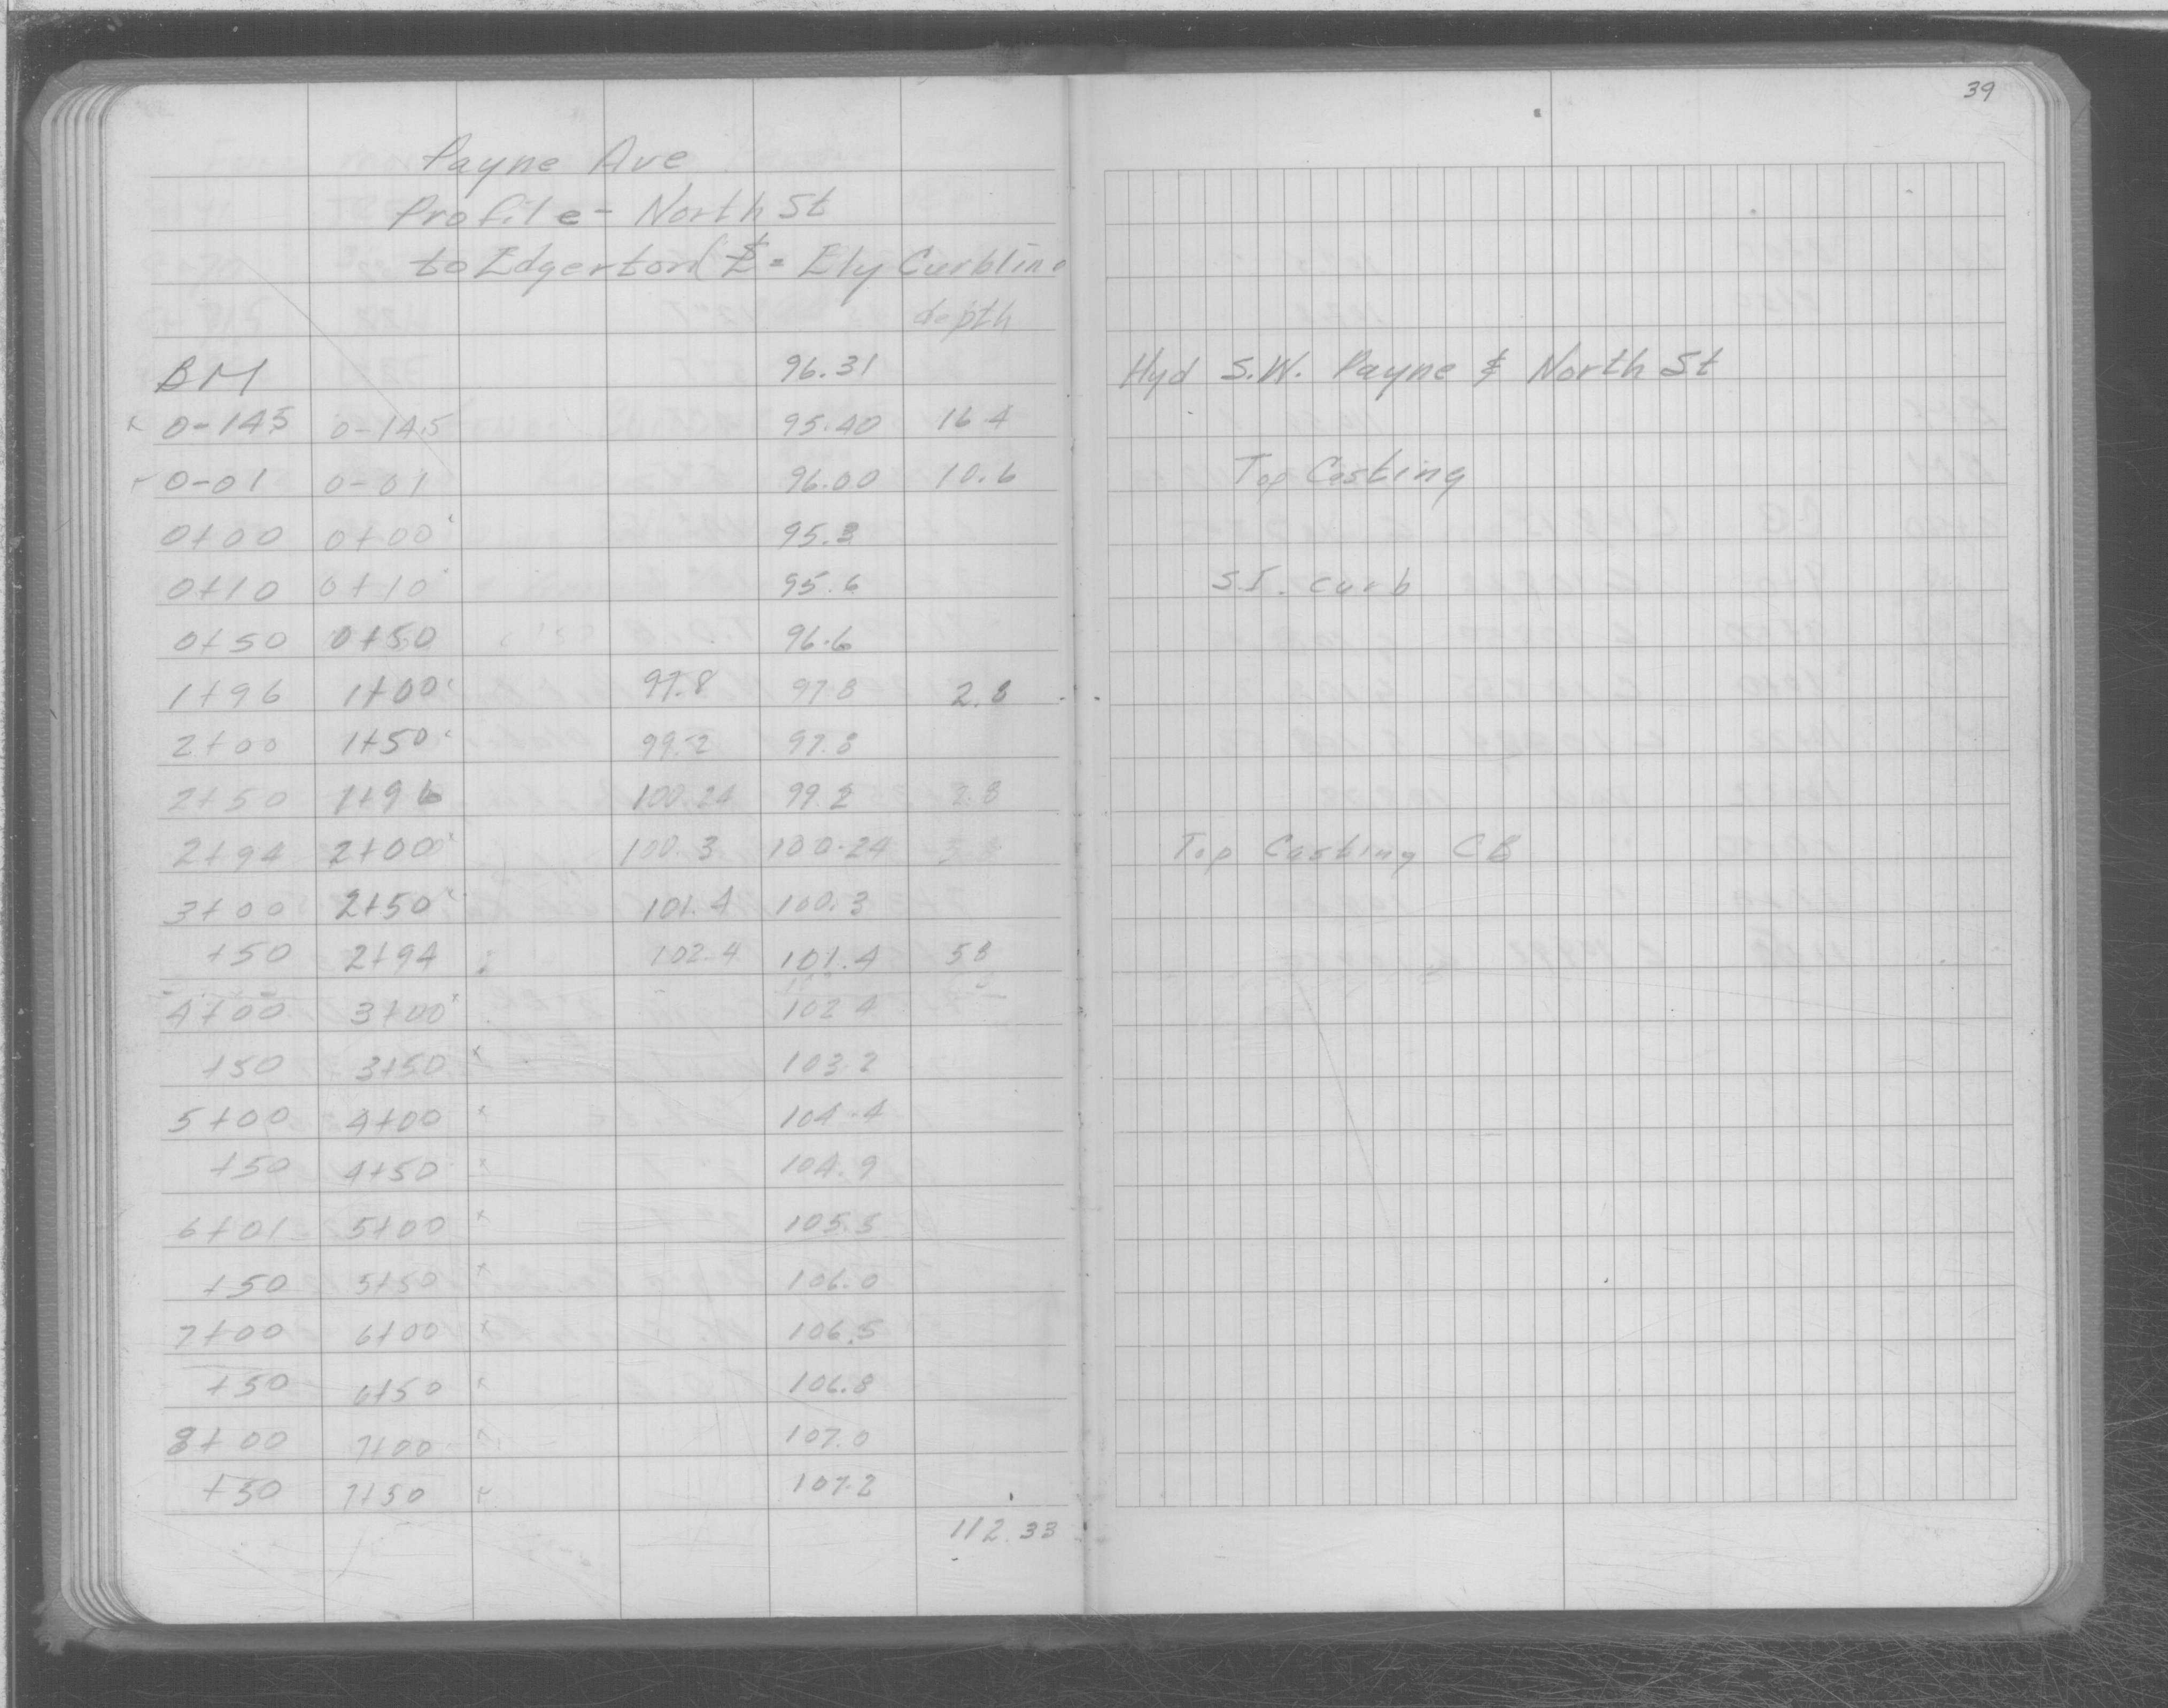 39
Payne Ave
Profile - North St
to Edgerton (℄ = Ely Curbline
depth
BM 96.31 Hyd S.W. Payne & North St
x 0-14.5 0-14.5 95.40 16.4
0-01 0-01 96.00 10.6 Top Casting
0+00 0+00 95.3
0+10 0+10 95.6 S.I. curb
0+50 0+50 96.6
1+96 1+00 97.8 97.8 2.8
2+00 1+50 99.2 97.8
2+50 1+96 100.24 99.2 2.8
2+94 2+00 100.3 100.24 Top Casting CB
3+00 2+50 101.4 100.3
+50 2+94 102.4 101.4 5.8
4+00 3+00 102.4
+50 3+50 x 103.2
5+00 4+00 x 104.4
+50 4+50 x 104.9
6+01 5+00 x 105.5
+50 5+50 x 106.0
7+00 6+00 x 106.5
+50 6+50 x 106.8
8+00 7+00 x 107.0
+50 7+50 x 107.2
112.33